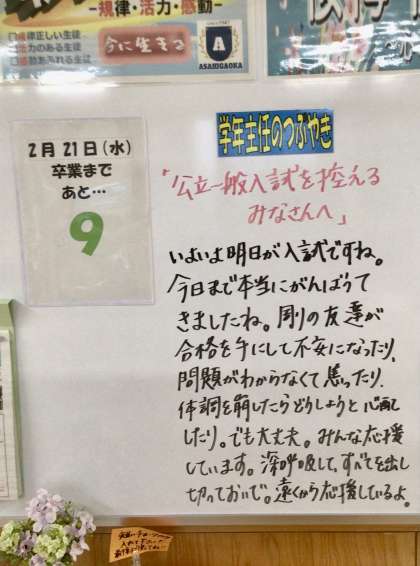 -規律・活力・感動-
規律正しい生徒
活力のある生徒
今に生きる
A
ASAHIGAOKA
2月21日(水)
卒業まで
あと…
9
学年主任のつぶやき
「公立一般入試を控える
みなさんへ」
いよいよ明日が入試ですね。
今日まで本当にがんばって
きましたね。周りの友達が
合格を手にして不安になったり、
問題がわからなくて焦ったり、
体調を崩したらどうしようと心配
したり。でも大丈夫。みんな応援
しています。深呼吸して、すべてを出し
切っておいで。遠くから応援しているよ。